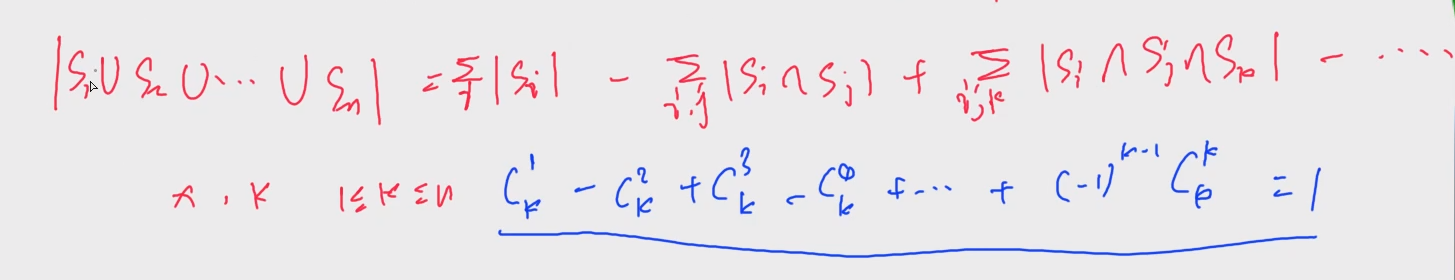 |S₁∪S₂∪⋯∪Sₙ| = Σᵢ|Sᵢ| - Σᵢ,ⱼ|Sᵢ∩Sⱼ| + Σᵢ,ⱼ,ₖ|Sᵢ∩Sⱼ∩Sₖ| - ⋯⋯
x, k 1≤k≤n C_k^1 - C_k^2 + C_k^3 - C_k^4 + ⋯ + (-1)^{k-1} C_k^k = 1